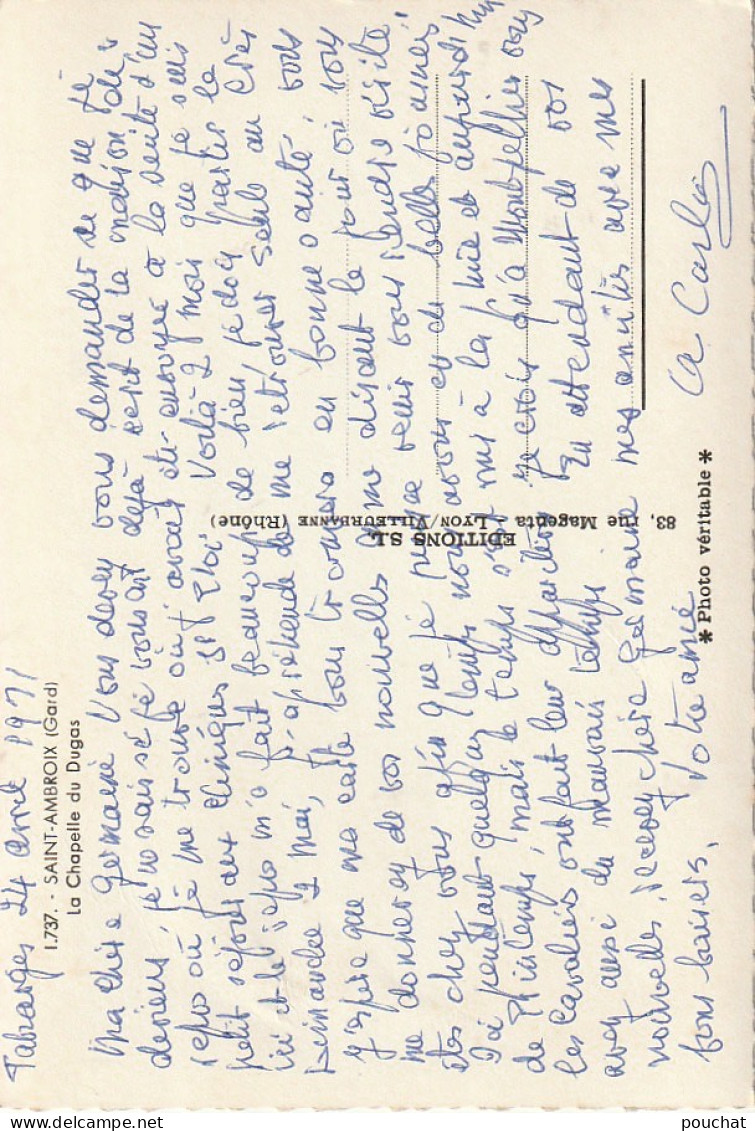 Tabrarges 24 avril 1971
1.737. - SAINT-AMBROIX (Gard)
La Chapelle du Dugas
Ma chère Germaine Vous devez vous demander ce que je
deviens, je ne sais si je vous ai déjà écrit de la maison de
repos où je me trouve où j'avais été envoyée à la suite d'un
petit séjour aux cliniques St Eloi Voilà 2 mois que je suis
ici et le repos m'a fait beaucoup de bien, je dois partir le
Dimanche 2 Mai, j'apréhende de me retrouver seule au
j'espère que ma carte vous trouvera en bonne santé, vous
me donnerez de vos nouvelles en me disant le jour où vous
êtes chez vous afin que je puisse venir vous rendre visite,
J'ai pendant quelques temps nous avons eu de belles journées
de Printemps, mais le temps s'est mis à la pluie et aujourd'hui
les cavaliers ont fait leur apparition je crois qu'à Montpellier vous
avez aussi du mauvais temps En attendant de vos
nouvelles, recevez chère Germaine mes amitiés avec mes
bons baisers. Votre amie
Ca Carlo
EDITIONS S.L.
83, rue Magenta - LYON/VILLEURBANNE (Rhône)
* Photo véritable *
pouchat